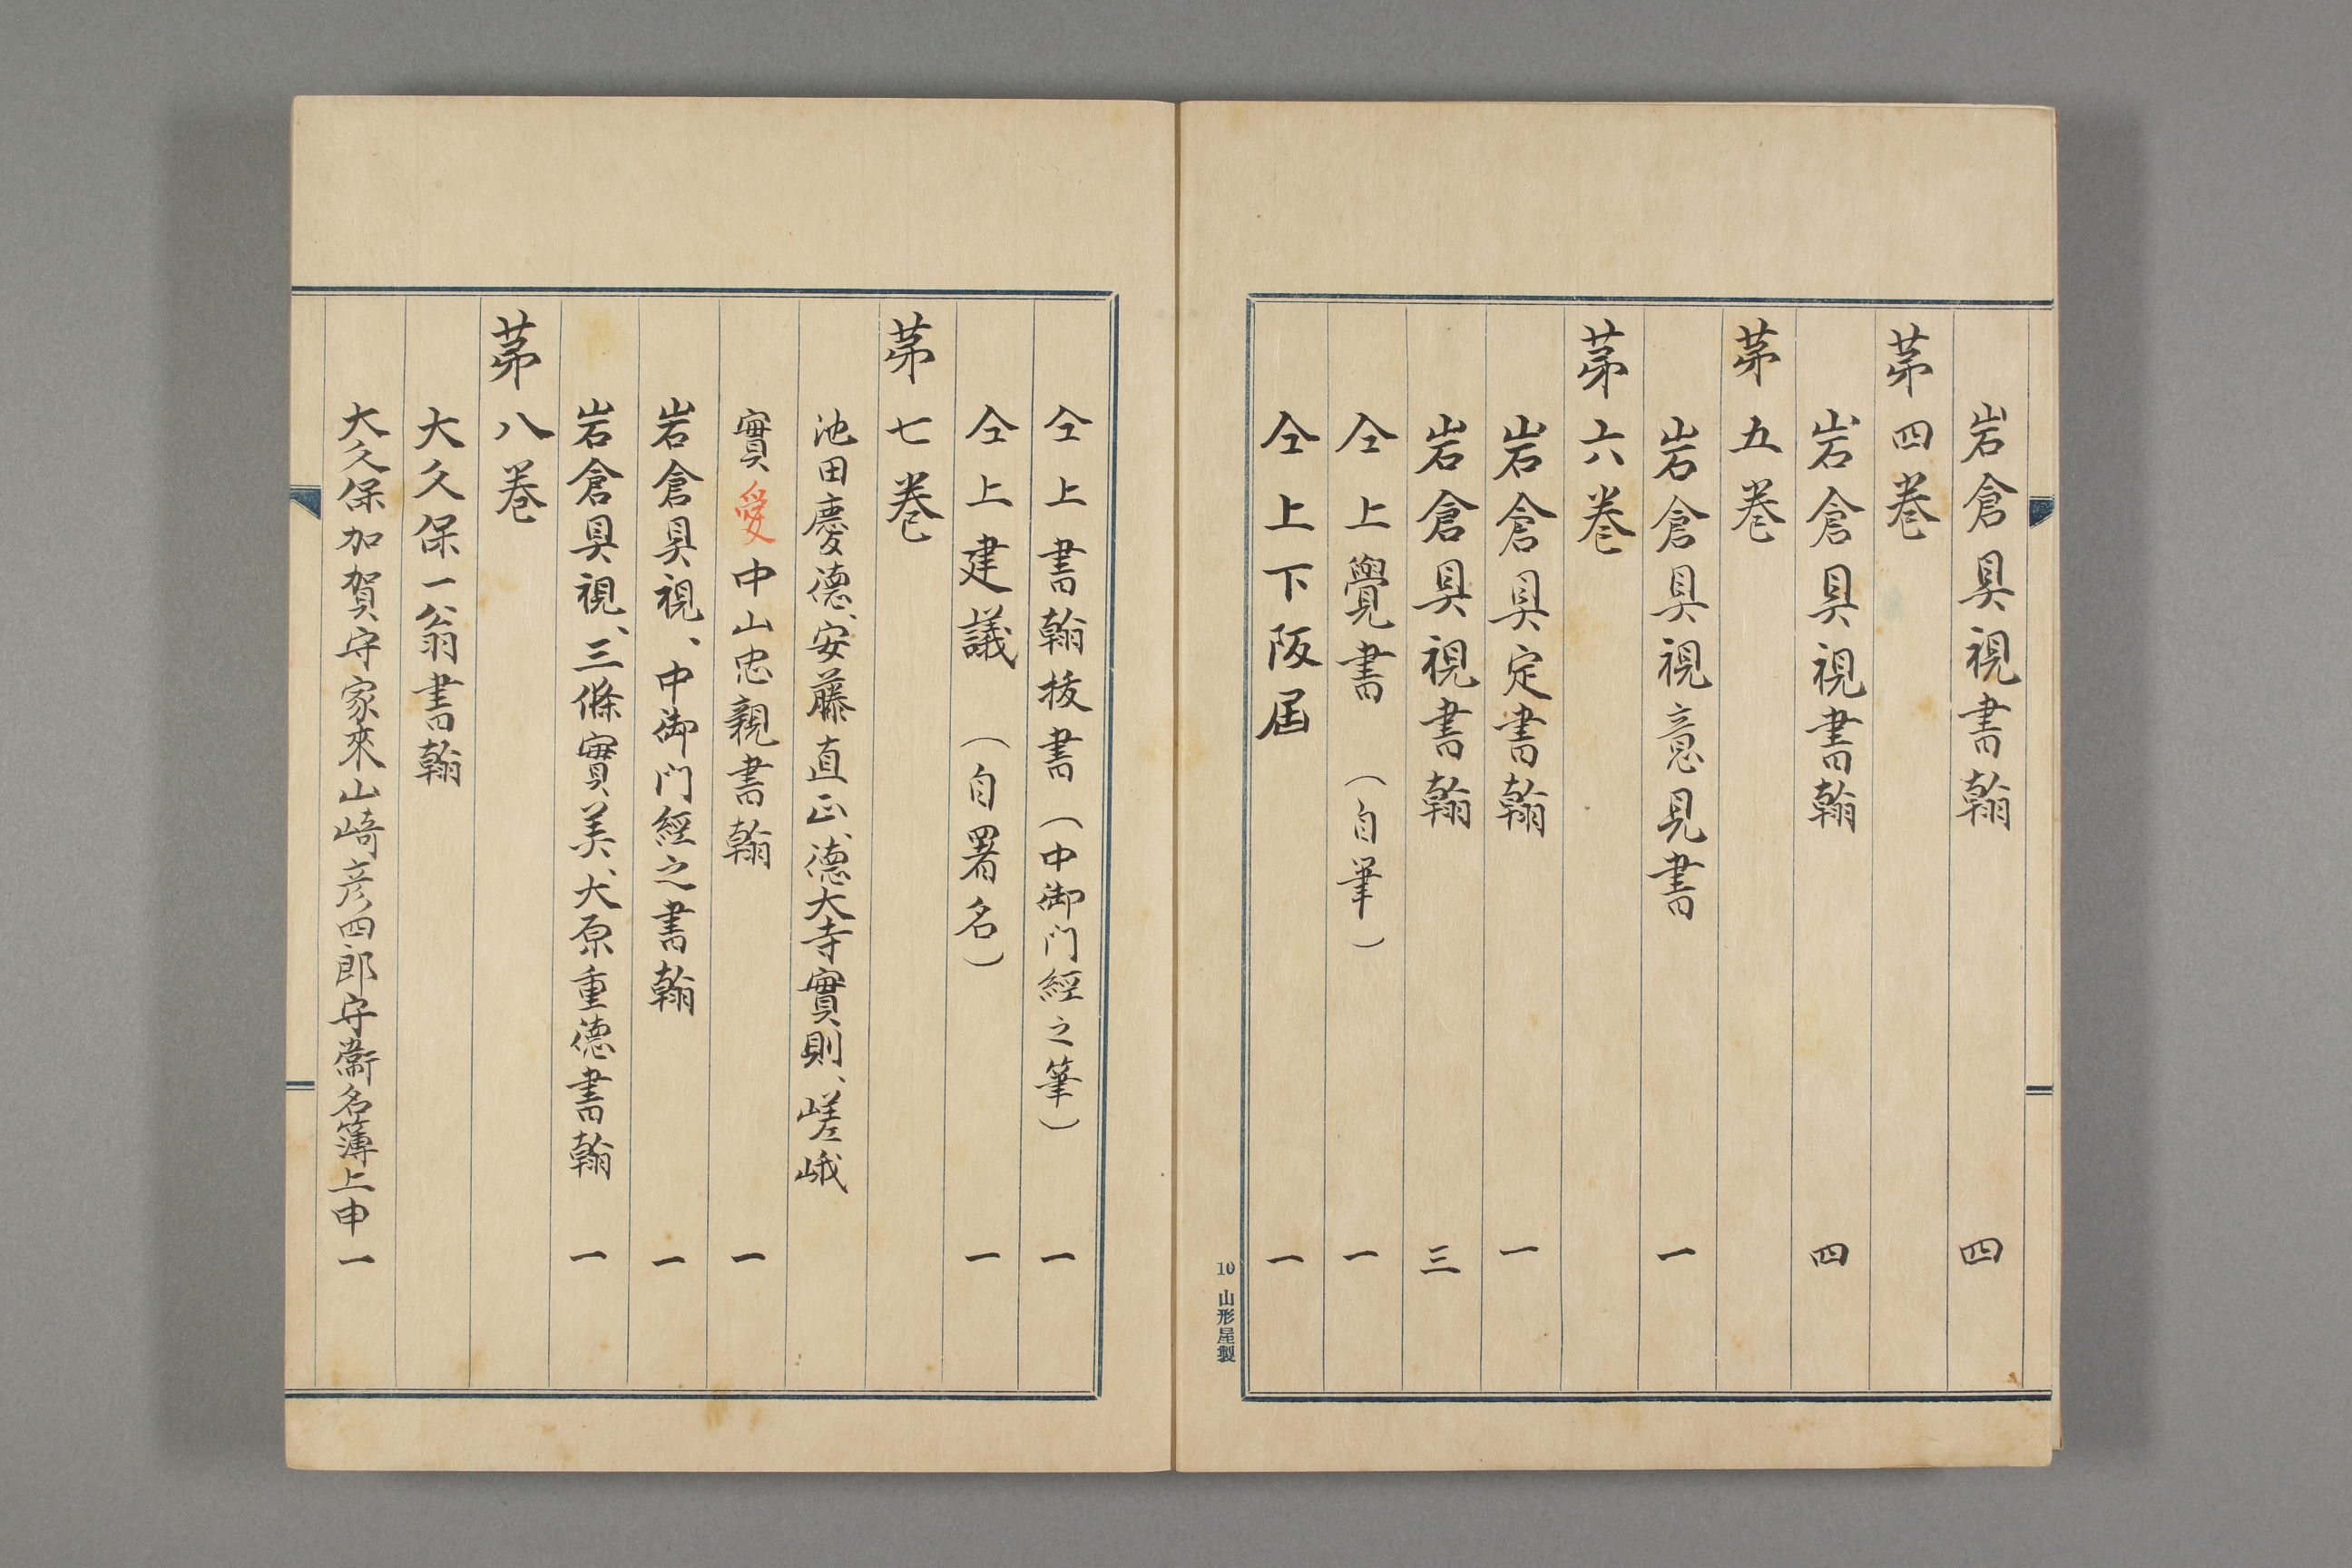 岩倉具視書翰　四
第四巻
岩倉具視書翰　四
第五巻
岩倉具視意見書　一
第六巻
岩倉具定書翰　一
岩倉具視書翰　三
仝上覺書（自筆）　一
仝上下阪届　一
10 山形屋製
仝上書翰抜書（中御门經之筆）　一
仝上建議（自署名）　一
第七巻
池田慶德、安藤直正、德大寺實則、嵯峨
實愛中山忠親書翰　一
岩倉具視、中御门經之書翰　一
岩倉具視、三條實美、大原重德書翰　一
第八巻
大久保一翁書翰
大久保加賀守家來山崎彦四郎守衞名簿上申　一